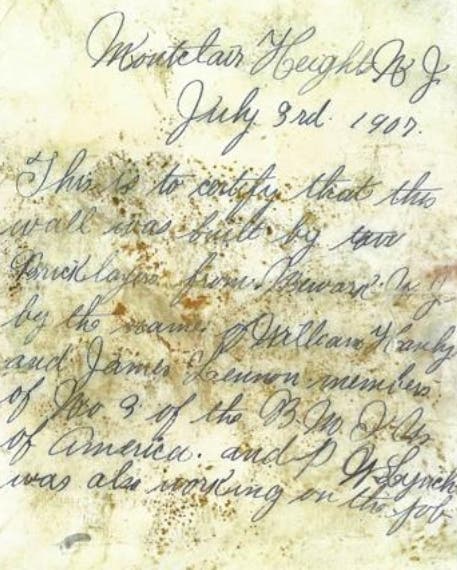 Montclair Heights N J
July 3rd. 1907.
This is to certify that this
wall was built by two
Bricklayers from Newark N. J.
by the name of William Hanly
and James Lennon members
of No 3 of the B. M. I. U.
of America. and P W Lynch
was also working on the job